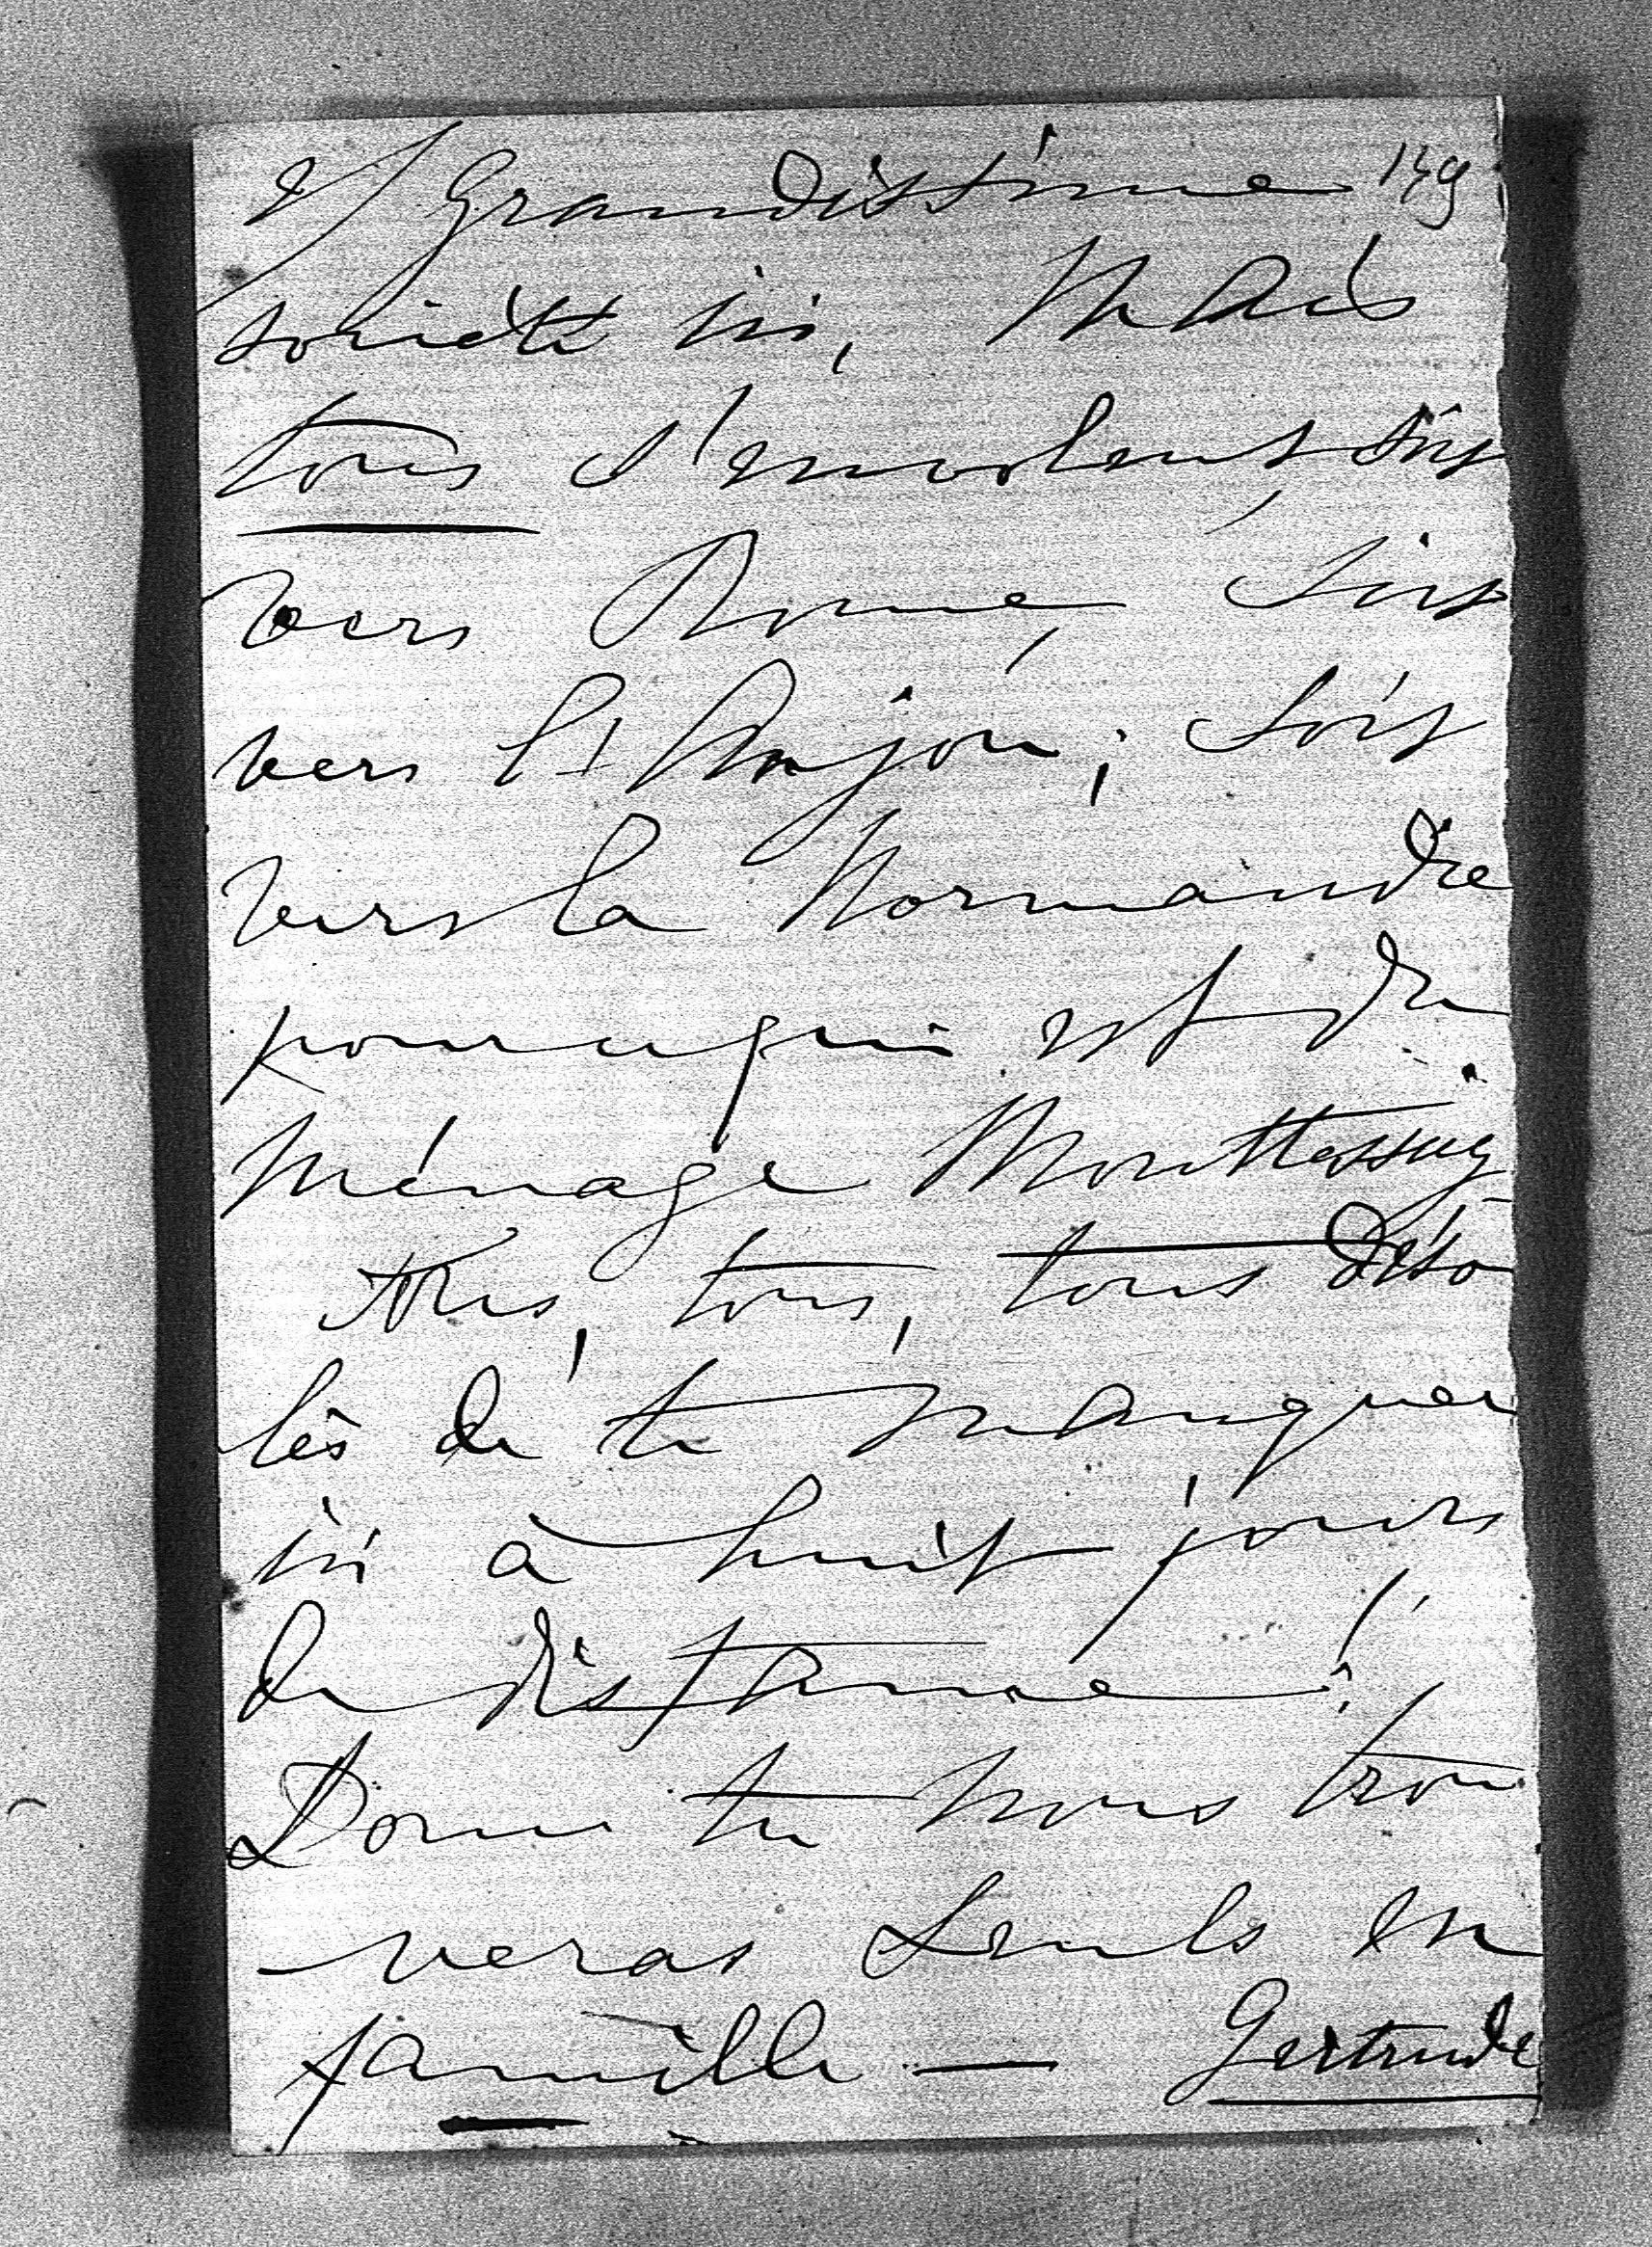 2/ Grandissime 149
société ici, Mais
tous s'envolent soit
vers Rome, soit
vers l'Anjou; soit
vers la Normandie
pour ce qui est du
Ménage Monttessuy
Tous, tous, tous déso
lés de te manquer
ici à huit jours
de distance!
Donc tu nous trou
veras seuls en
famille — Gertrude